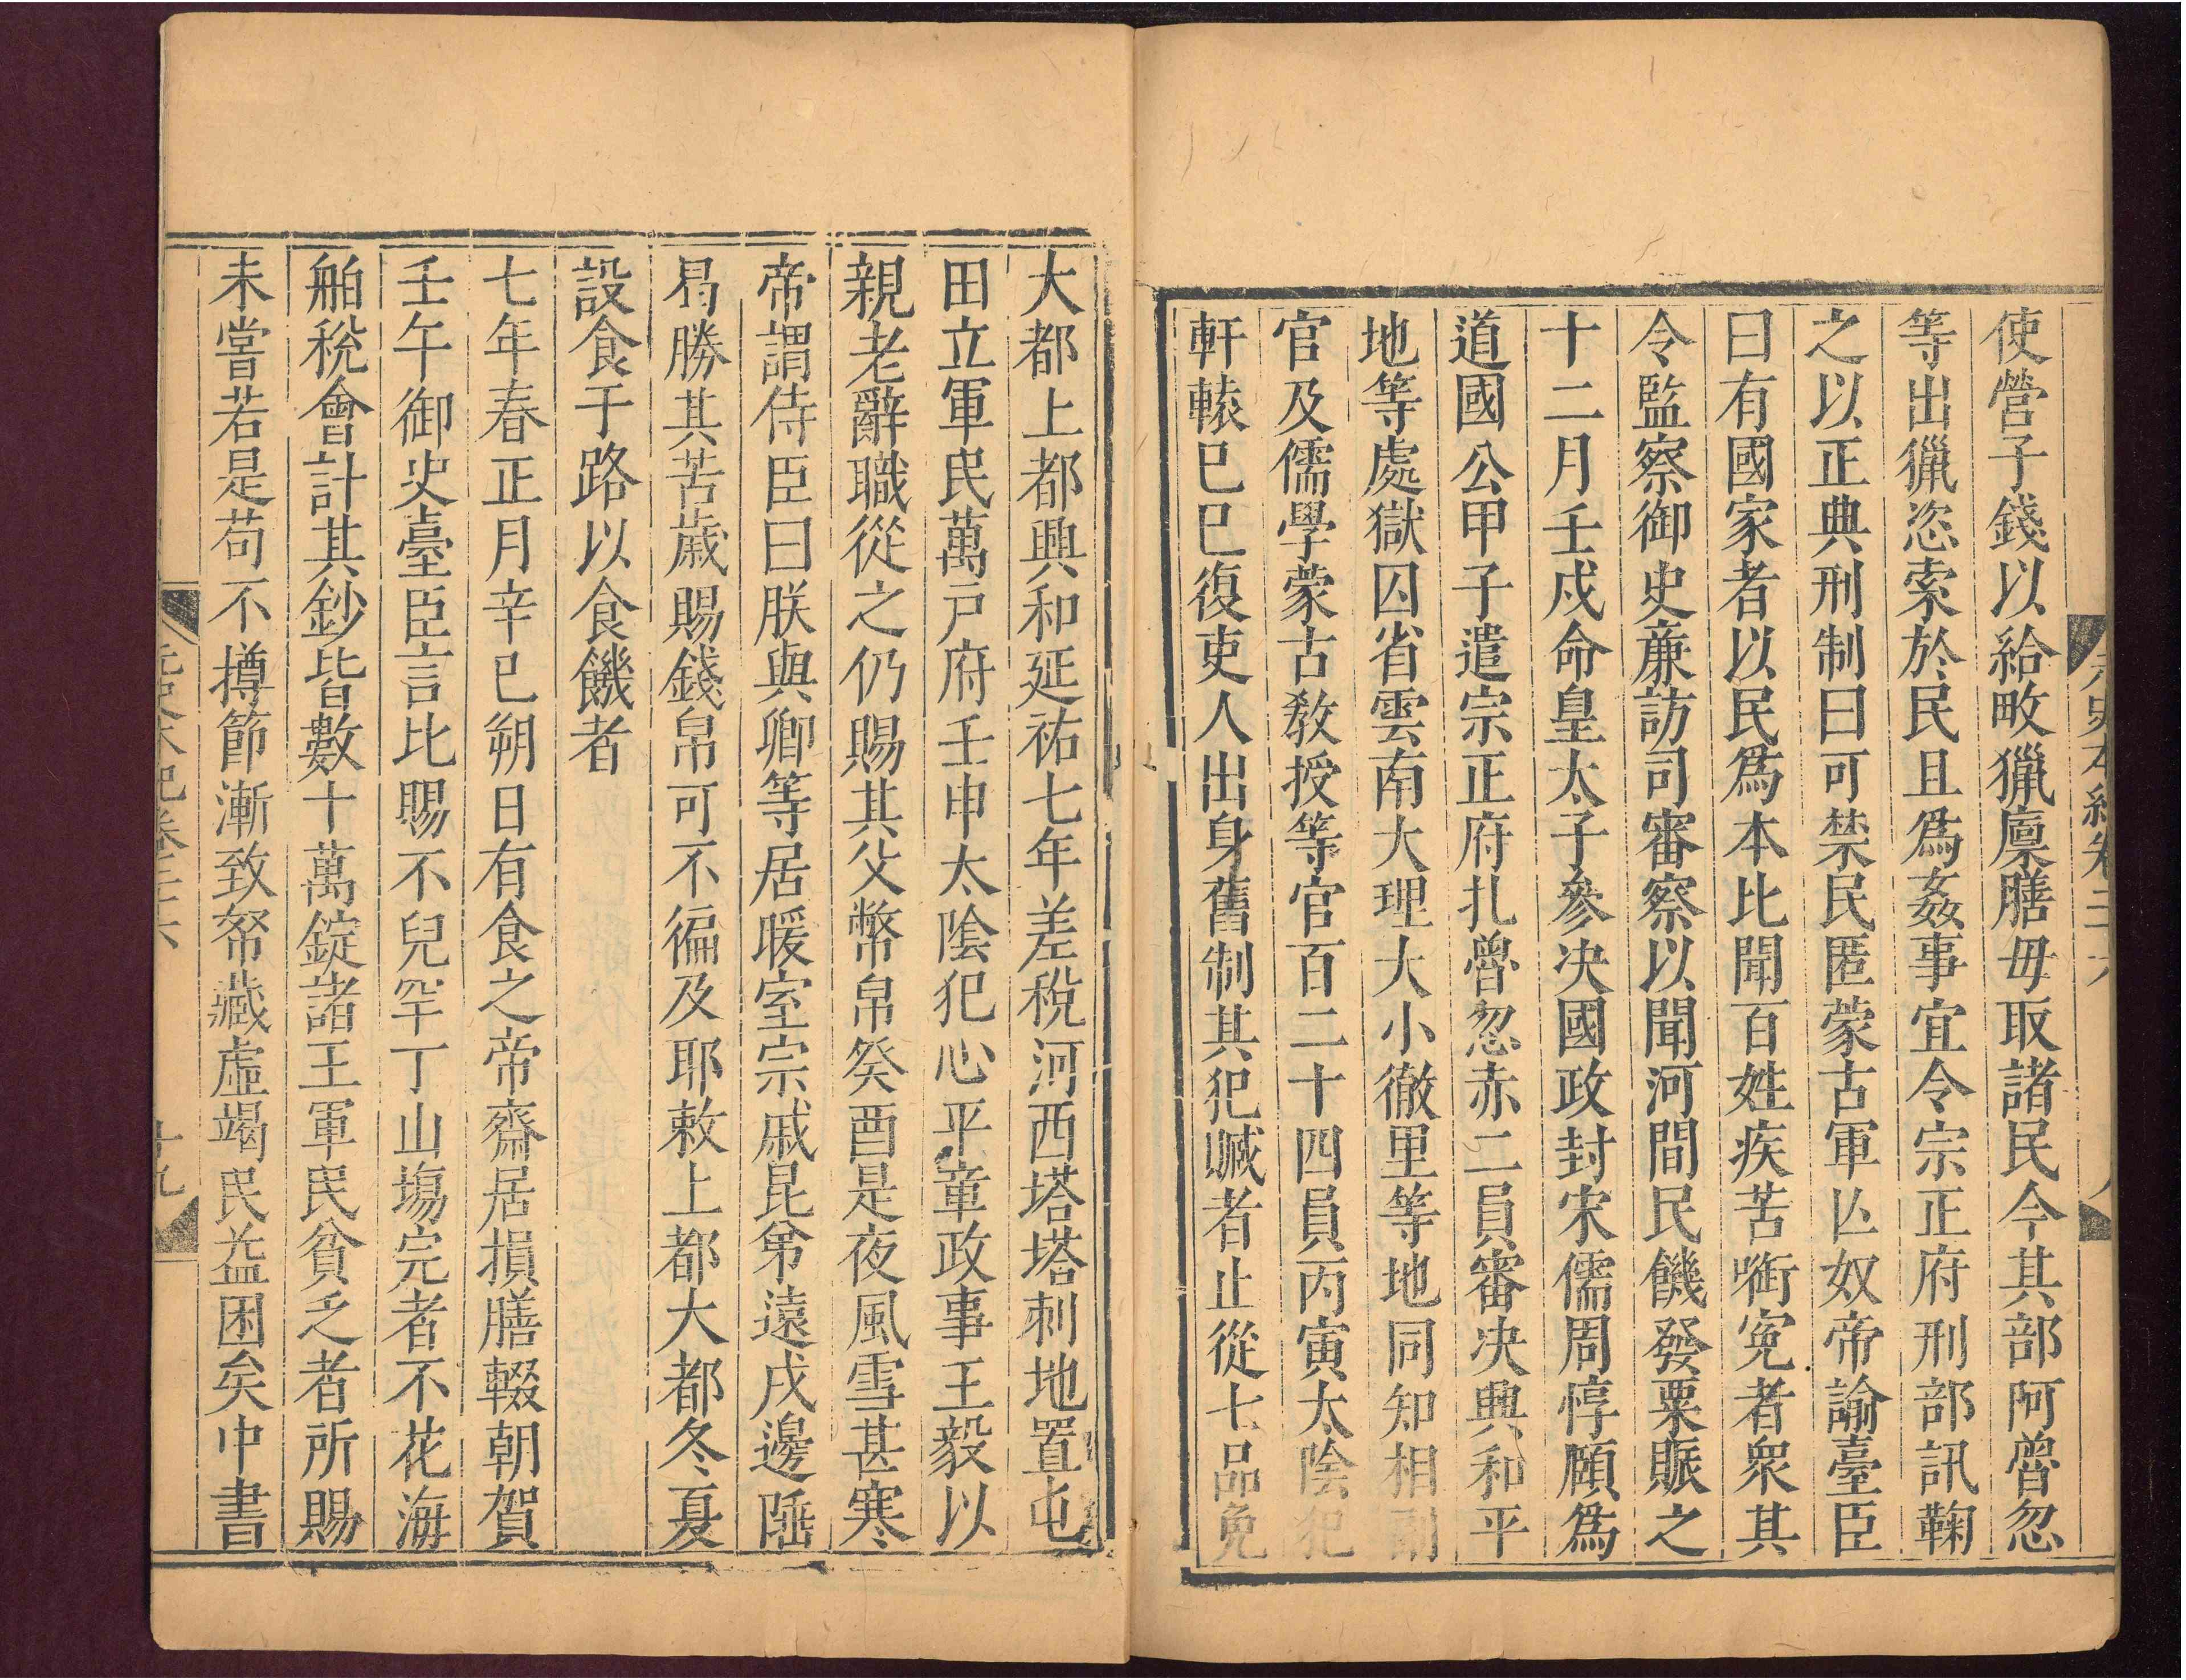 使營子錢以給畋獵廩膳毋取諸民今其部阿魯忽
等出獵恣索於民且爲姦事宜令宗正府刑部訊鞫
之以正典刑制曰可禁民匿蒙古軍亾奴帝諭臺臣
曰有國家者以民爲本比聞百姓疾苦銜寃者衆其
令監察御史廉訪司審察以聞河間民饑發粟賑之
十二月壬戍命皇太子參决國政封宋儒周惇頤爲
道國公甲子遣宗正府扎魯忽赤二員審决興和平
地等處獄囚省雲南大理大小徹里等地同知相副
官及儒學蒙古教授等官百二十四員丙寅太陰犯
軒轅巳巳復吏人出身舊制其犯贓者止從七品免
大都上都興和延祐七年差稅河西塔塔刺地置屯
田立軍民萬戸府壬申太陰犯心平章政事王毅以
親老辭職從之仍賜其父幣帛癸酉是夜風雪甚寒
帝謂侍臣曰朕與卿等居暖室宗戚昆弟遠戍邊陲
曷勝其苦歲賜錢帛可不徧及耶敕上都大都冬夏
設食于路以食饑者
七年春正月辛巳朔日有食之帝齋居損膳輟朝賀
壬午御史臺臣言比賜不兒罕丁山塲完者不花海
舶稅會計其鈔皆數十萬錠諸王軍民貧乏者所賜
未嘗若是苟不撙節漸致帑藏虛竭民益困矣中書
元史本紀卷二十六
十九